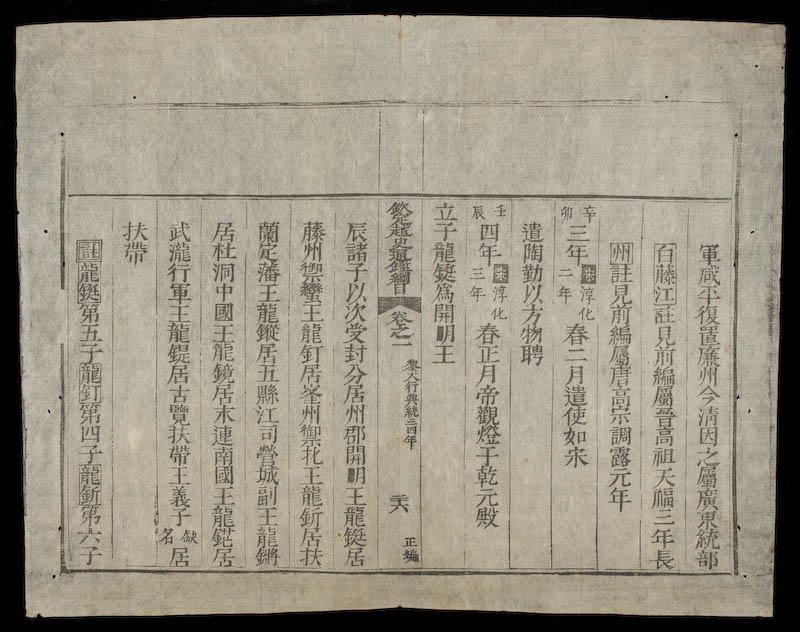 軍咸平復置廉州今淸因之屬廣東統部
白藤江註見前編屬晉高祖天福三年長
州註見前編屬唐高宗調露元年
辛卯三年宋淳化二年春二月遣使如宋
遣陶勤以方物聘
壬辰四年宋淳化三年春正月帝觀燈于乾元殿
立子龍鋌爲開明王
欽定越史通鑑綱目 卷之一 黎大行興統三四年 三六 正編
辰諸子以次受封分居州郡開明王龍鋌居
藤州禦蠻王龍釘居峯州禦北王龍釿居扶
蘭定藩王龍鏦居五縣江司營城副王龍鏘
居杜洞中國王龍鏡居末連南國王龍鋩居
武瀧行軍王龍鍉居古覽扶帶王義子缺名居
扶帶
註龍鋌第五子龍釘第四子龍釿第六子